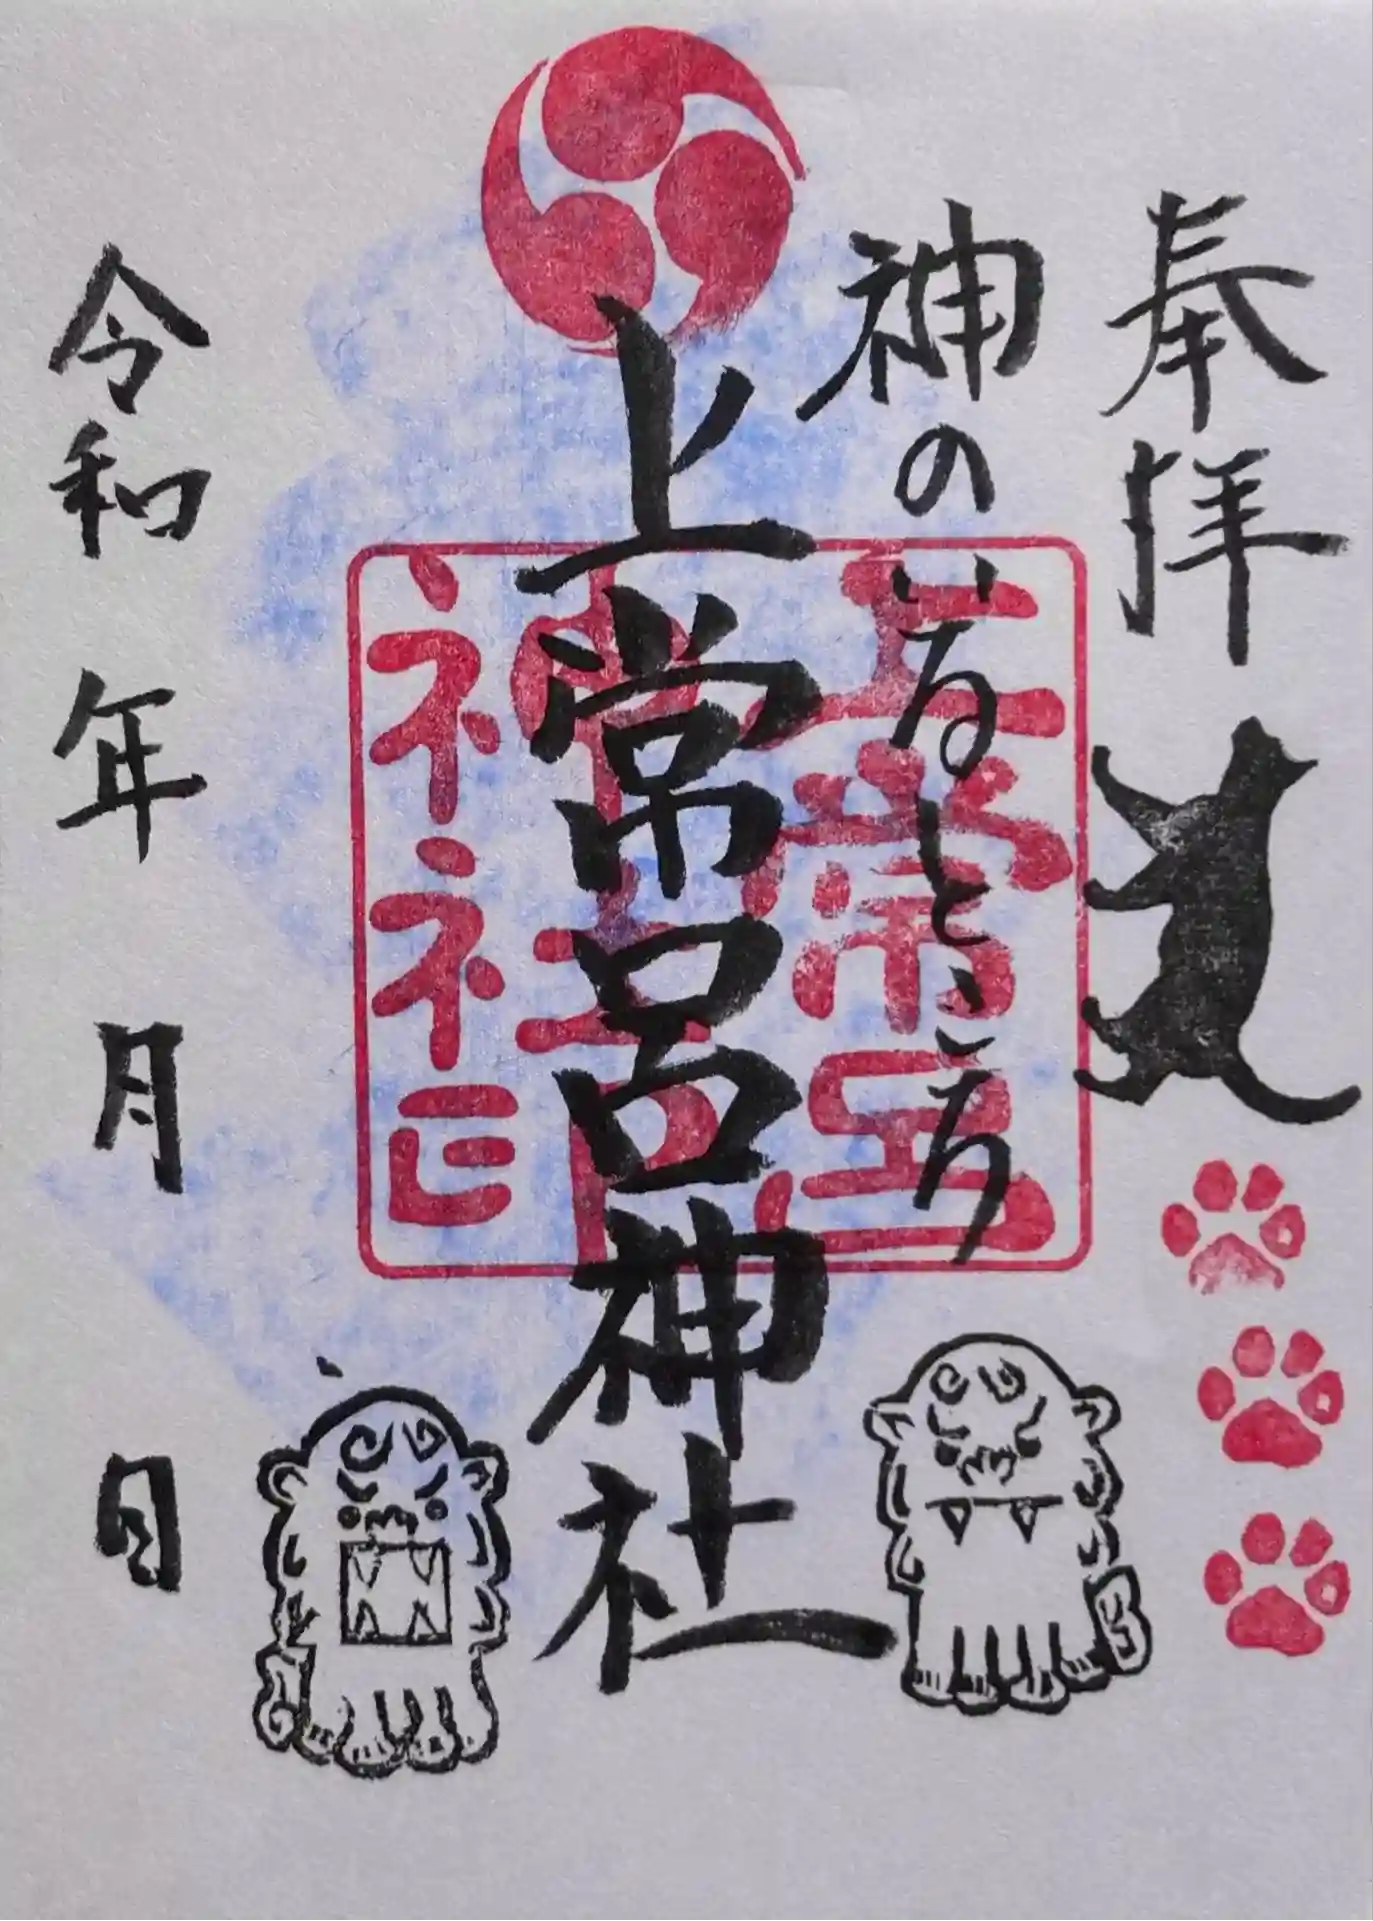 奉拝
神のいるところ
上常呂神社
上常呂
神社
神社
令和 年 月 日